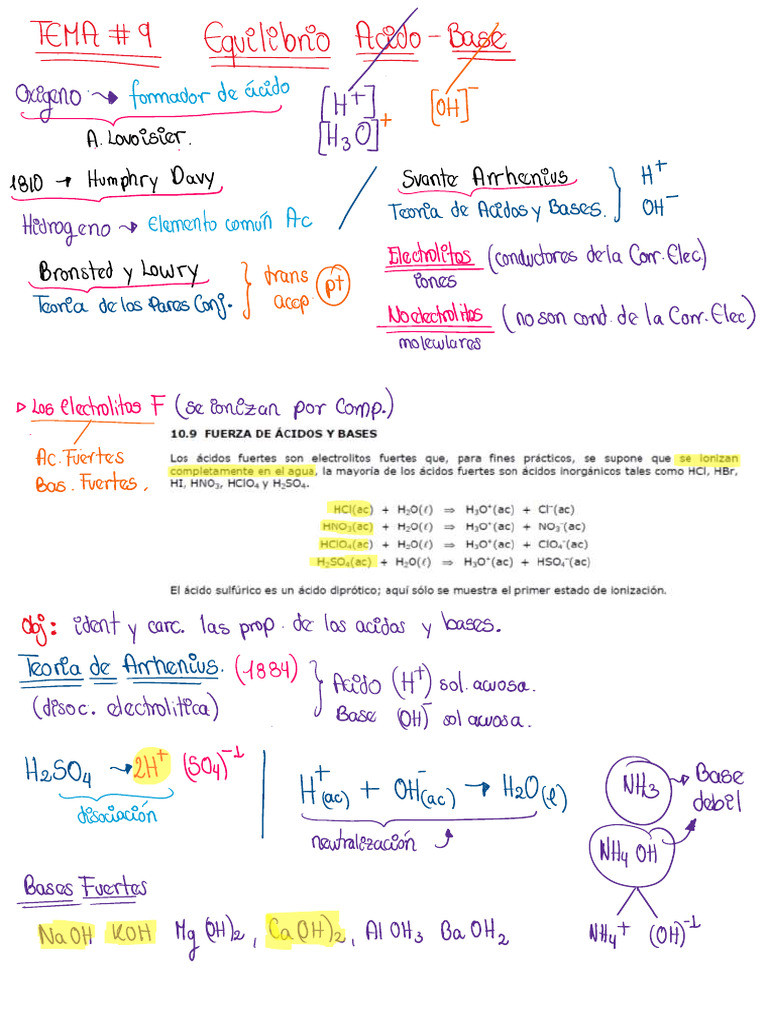 TEMA # 9 Equilibrio Acido - Base
Oxigeno → formador de ácido
A. Lovoisier.
[H+] [OH]-
[H3O]+
1810 → Humphry Davy
Hidrogeno → Elemento común Ac
Svante Arrhenius
Teoria de Acidos y Bases.
H+
OH-
Bronsted y Lowry
Teoria de los Pares Conj.
trans
acep
p+
Electrolitos (conductores de la Corr. Elec)
iones
No electrolitos (no son cond. de la Corr. Elec)
moleculares
▷ Los electrolitos F (se ionizan por Comp.)
Ac. Fuertes
Bas. Fuertes.
10.9 FUERZA DE ÁCIDOS Y BASES
Los ácidos fuertes son electrolitos fuertes que, para fines prácticos, se supone que se ionizan
completamente en el agua, la mayoría de los ácidos fuertes son ácidos inorgánicos tales como HCl, HBr,
HI, HNO3, HClO4 y H2SO4.
HCl(ac) + H2O(ℓ) ⇒ H3O+(ac) + Cl-(ac)
HNO3(ac) + H2O(ℓ) ⇒ H3O+(ac) + NO3-(ac)
HClO4(ac) + H2O(ℓ) ⇒ H3O+(ac) + ClO4-(ac)
H2SO4(ac) + H2O(ℓ) ⇒ H3O+(ac) + HSO4-(ac)
El ácido sulfúrico es un ácido diprótico; aquí sólo se muestra el primer estado de ionización.
Obj: ident y carc. las prop. de los acidos y bases.
Teoria de Arrhenius. (1884)
(disoc. electrolitica)
Acido (H+) sol. acuosa.
Base (OH)- sol acuosa.
H2SO4 → 2H+ (SO4)-1
disociación
H+(ac) + OH-(ac) → H2O(l)
neutralización
NH3 → Base debil
NH4 OH
NH4+ (OH)-1
Bases Fuertes
NaOH KOH Mg(OH)2, Ca(OH)2, Al OH3 Ba OH2